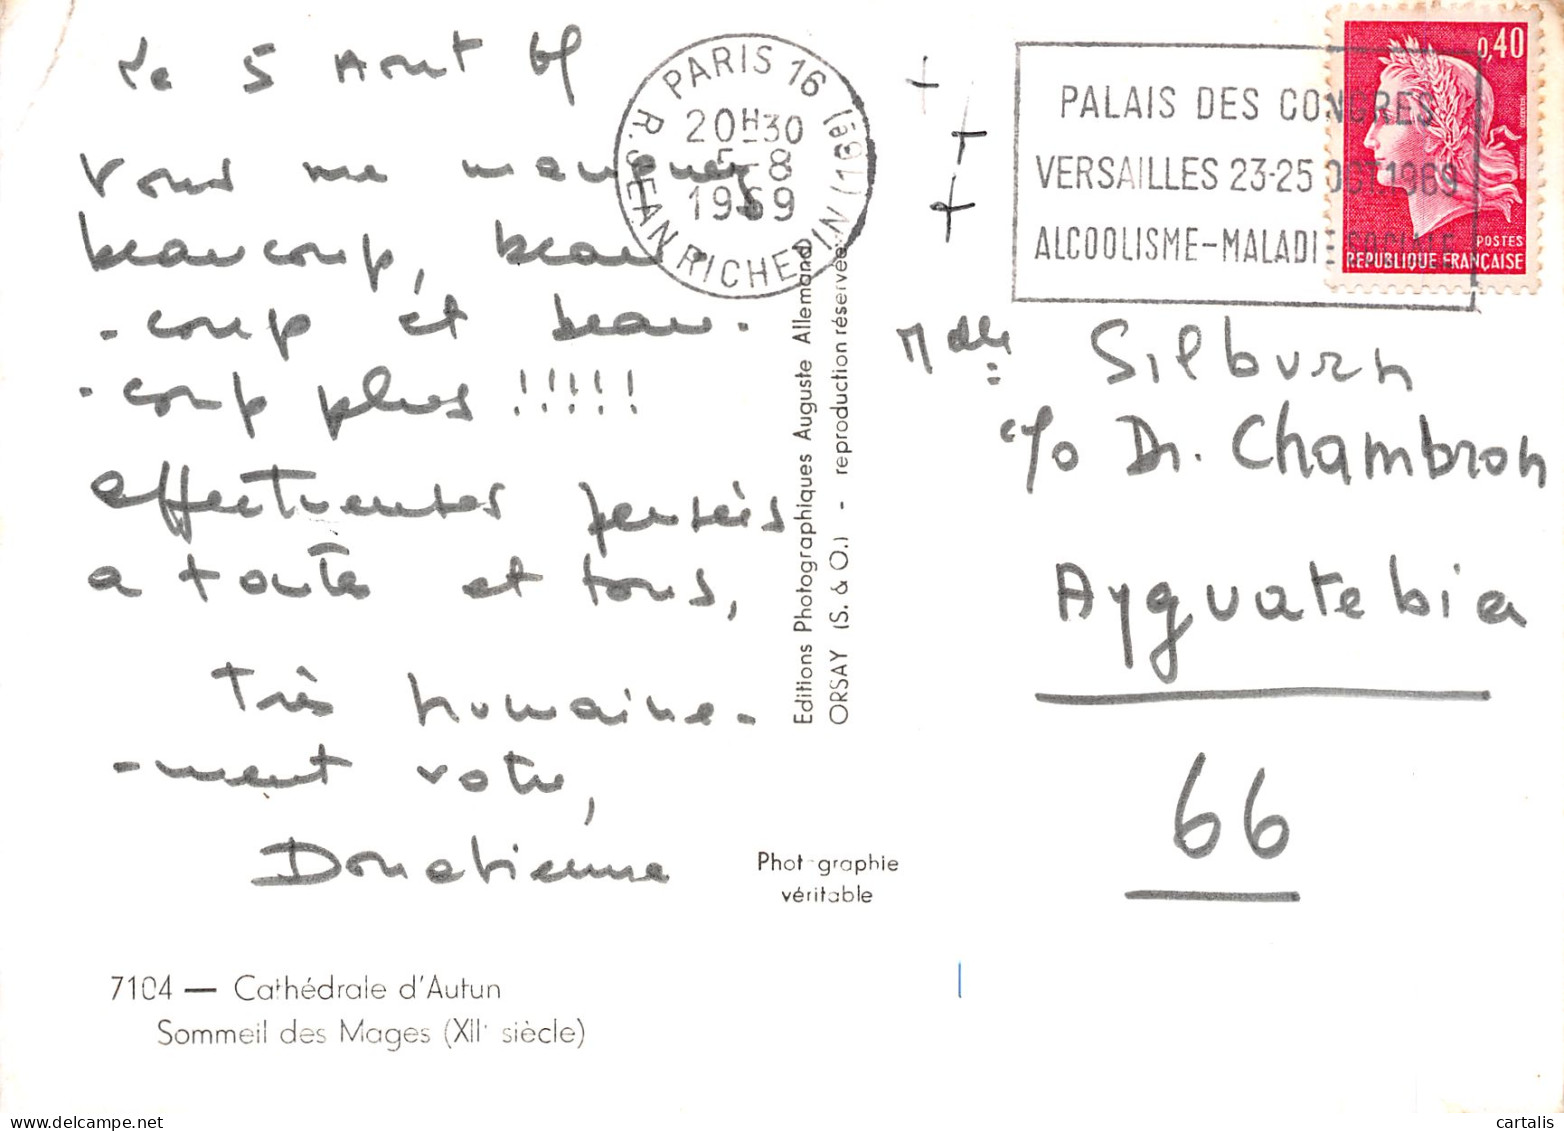 le 5 Aout 69
Vous me manquez
beaucoup, beau
-coup et beau-
-coup plus !!!!!
affectueuses pensées
a toute et tous,
Très humaine-
-ment votre,
Donatienne
7104 — Cathédrale d'Autun
Sommeil des Mages (XIIe siècle)
Photographie
véritable
Editions Photographiques Auguste Allemand
ORSAY (S. & O.) - reproduction réservée
PARIS 16
R. JEAN RICHEPIN (16È)
20H30
5-8
1969
PALAIS DES CONGRES
VERSAILLES 23-25 OCT.1969
ALCOOLISME-MALADIE SOCIALE
0,40
POSTES
REPUBLIQUE FRANÇAISE
Mdlle Silburn
c/o Dr. Chambron
Ayguatebia
66
cartalis